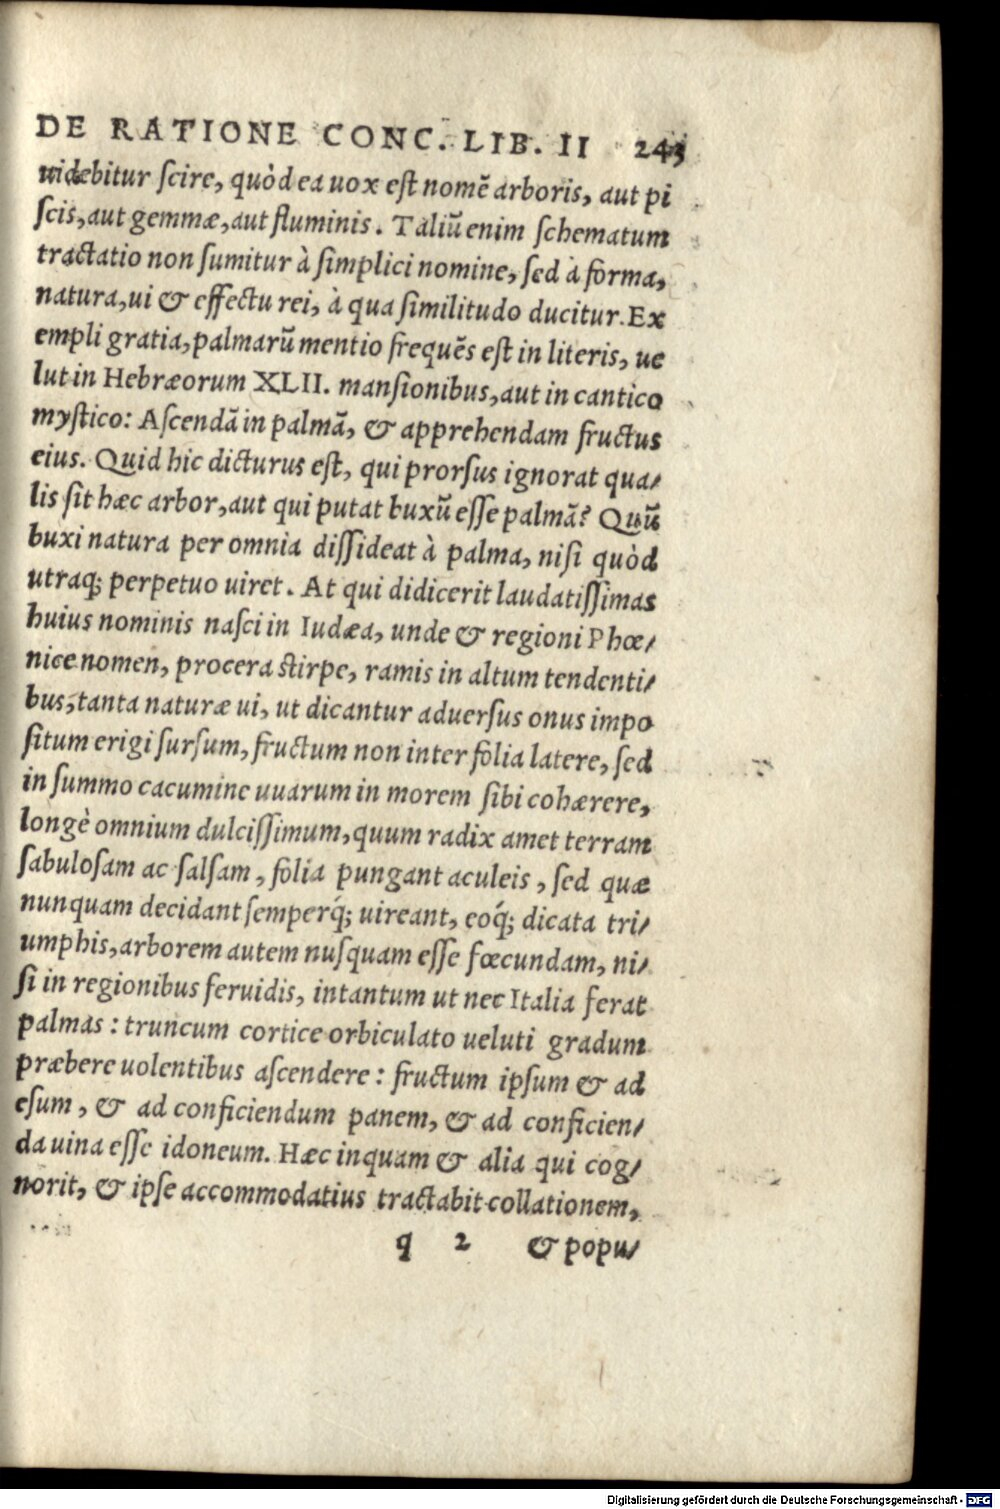 DE RATIONE CONC. LIB. II 243
uidebitur scire, quòd ea uox est nomē arboris, aut pi
scis, aut gemmæ, aut fluminis. Taliū enim schematum
tractatio non sumitur à simplici nomine, sed à forma,
natura, ui & effectu rei, à qua similitudo ducitur. Ex
empli gratia, palmarū mentio frequēs est in literis, ue
lut in Hebræorum XLII. mansionibus, aut in cantico
mystico: Ascendā in palmā, & apprehendam fructus
eius. Quid hic dicturus est, qui prorsus ignorat qua/
lis sit hæc arbor, aut qui putat buxū esse palmā? Quū
buxi natura per omnia dissideat à palma, nisi quòd
utraq; perpetuo uiret. At qui didicerit laudatissimas
huius nominis nasci in Iudæa, unde & regioni Phœ/
nice nomen, procera stirpe, ramis in altum tendenti/
bus, tanta naturæ ui, ut dicantur aduersus onus impo
situm erigi sursum, fructum non inter folia latere, sed
in summo cacumine uuarum in morem sibi cohærere,
longè omnium dulcissimum, quum radix amet terram
sabulosam ac salsam, folia pungant aculeis, sed quæ
nunquam decidant semperq́; uireant, eoq́; dicata tri/
umphis, arborem autem nusquam esse fœcundam, ni/
si in regionibus feruidis, intantum ut nec Italia ferat
palmas: truncum cortice orbiculato ueluti gradum
præbere uolentibus ascendere: fructum ipsum & ad
esum, & ad conficiendum panem, & ad conficien/
da uina esse idoneum. Hæc inquam & alia qui cog/
norit, & ipse accommodatius tractabit collationem,
q 2 & popu/
Digitalisierung gefördert durch die Deutsche Forschungsgemeinschaft - DFG